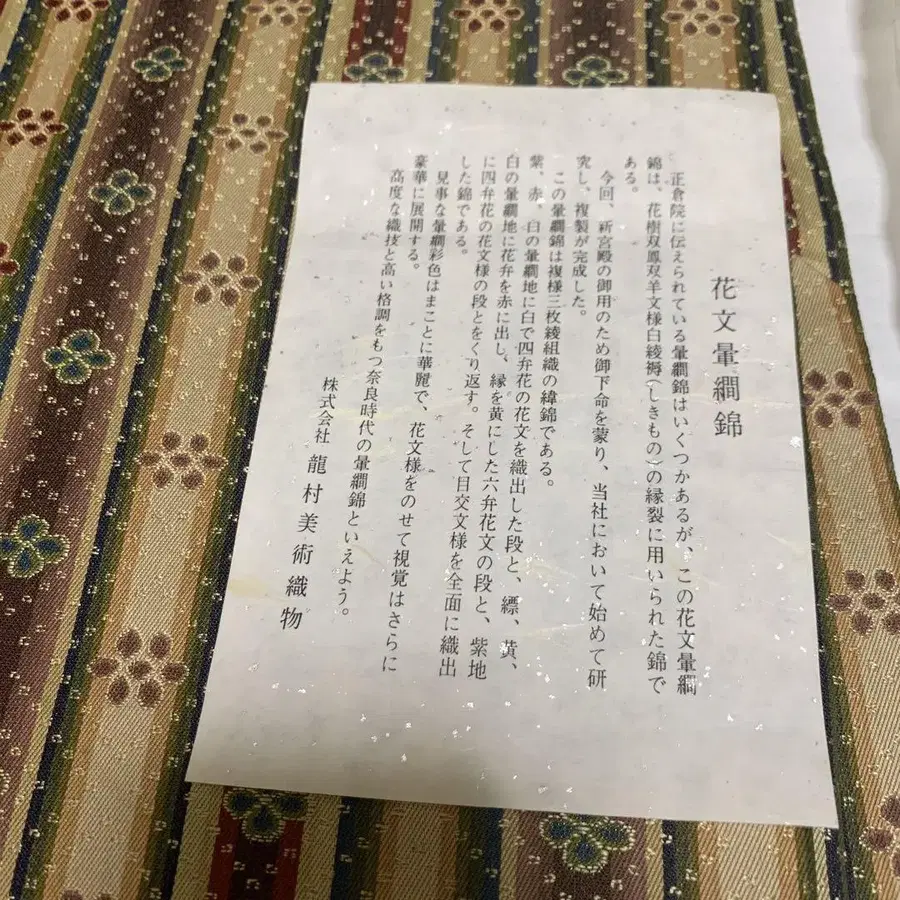 花文暈繝錦
正倉院に伝えられている暈繝錦はいくつかあるが、この花文暈繝
錦は、花樹双鳳双羊文様白綾褥(しきもの)の縁裂に用いられた錦で
ある。
今回、新宮殿の御用のため御下命を蒙り、当社において始めて研
究し、複製が完成した。
この暈繝錦は複様三枚綾組織の緯錦である。
紫、赤、白の暈繝地に白で四弁花の花文を織出した段と、縹、黄、
白の暈繝地に花弁を赤に出し、縁を黄にした六弁花文の段と、紫地
に四弁花の花文様の段とをくり返す。そして目交文様を全面に織出
した錦である。
見事な暈繝彩色はまことに華麗で、花文様をのせて視覚はさらに
豪華に展開する。
高度な織技と高い格調をもつ奈良時代の暈繝錦といえよう。
株式会社 龍村美術織物